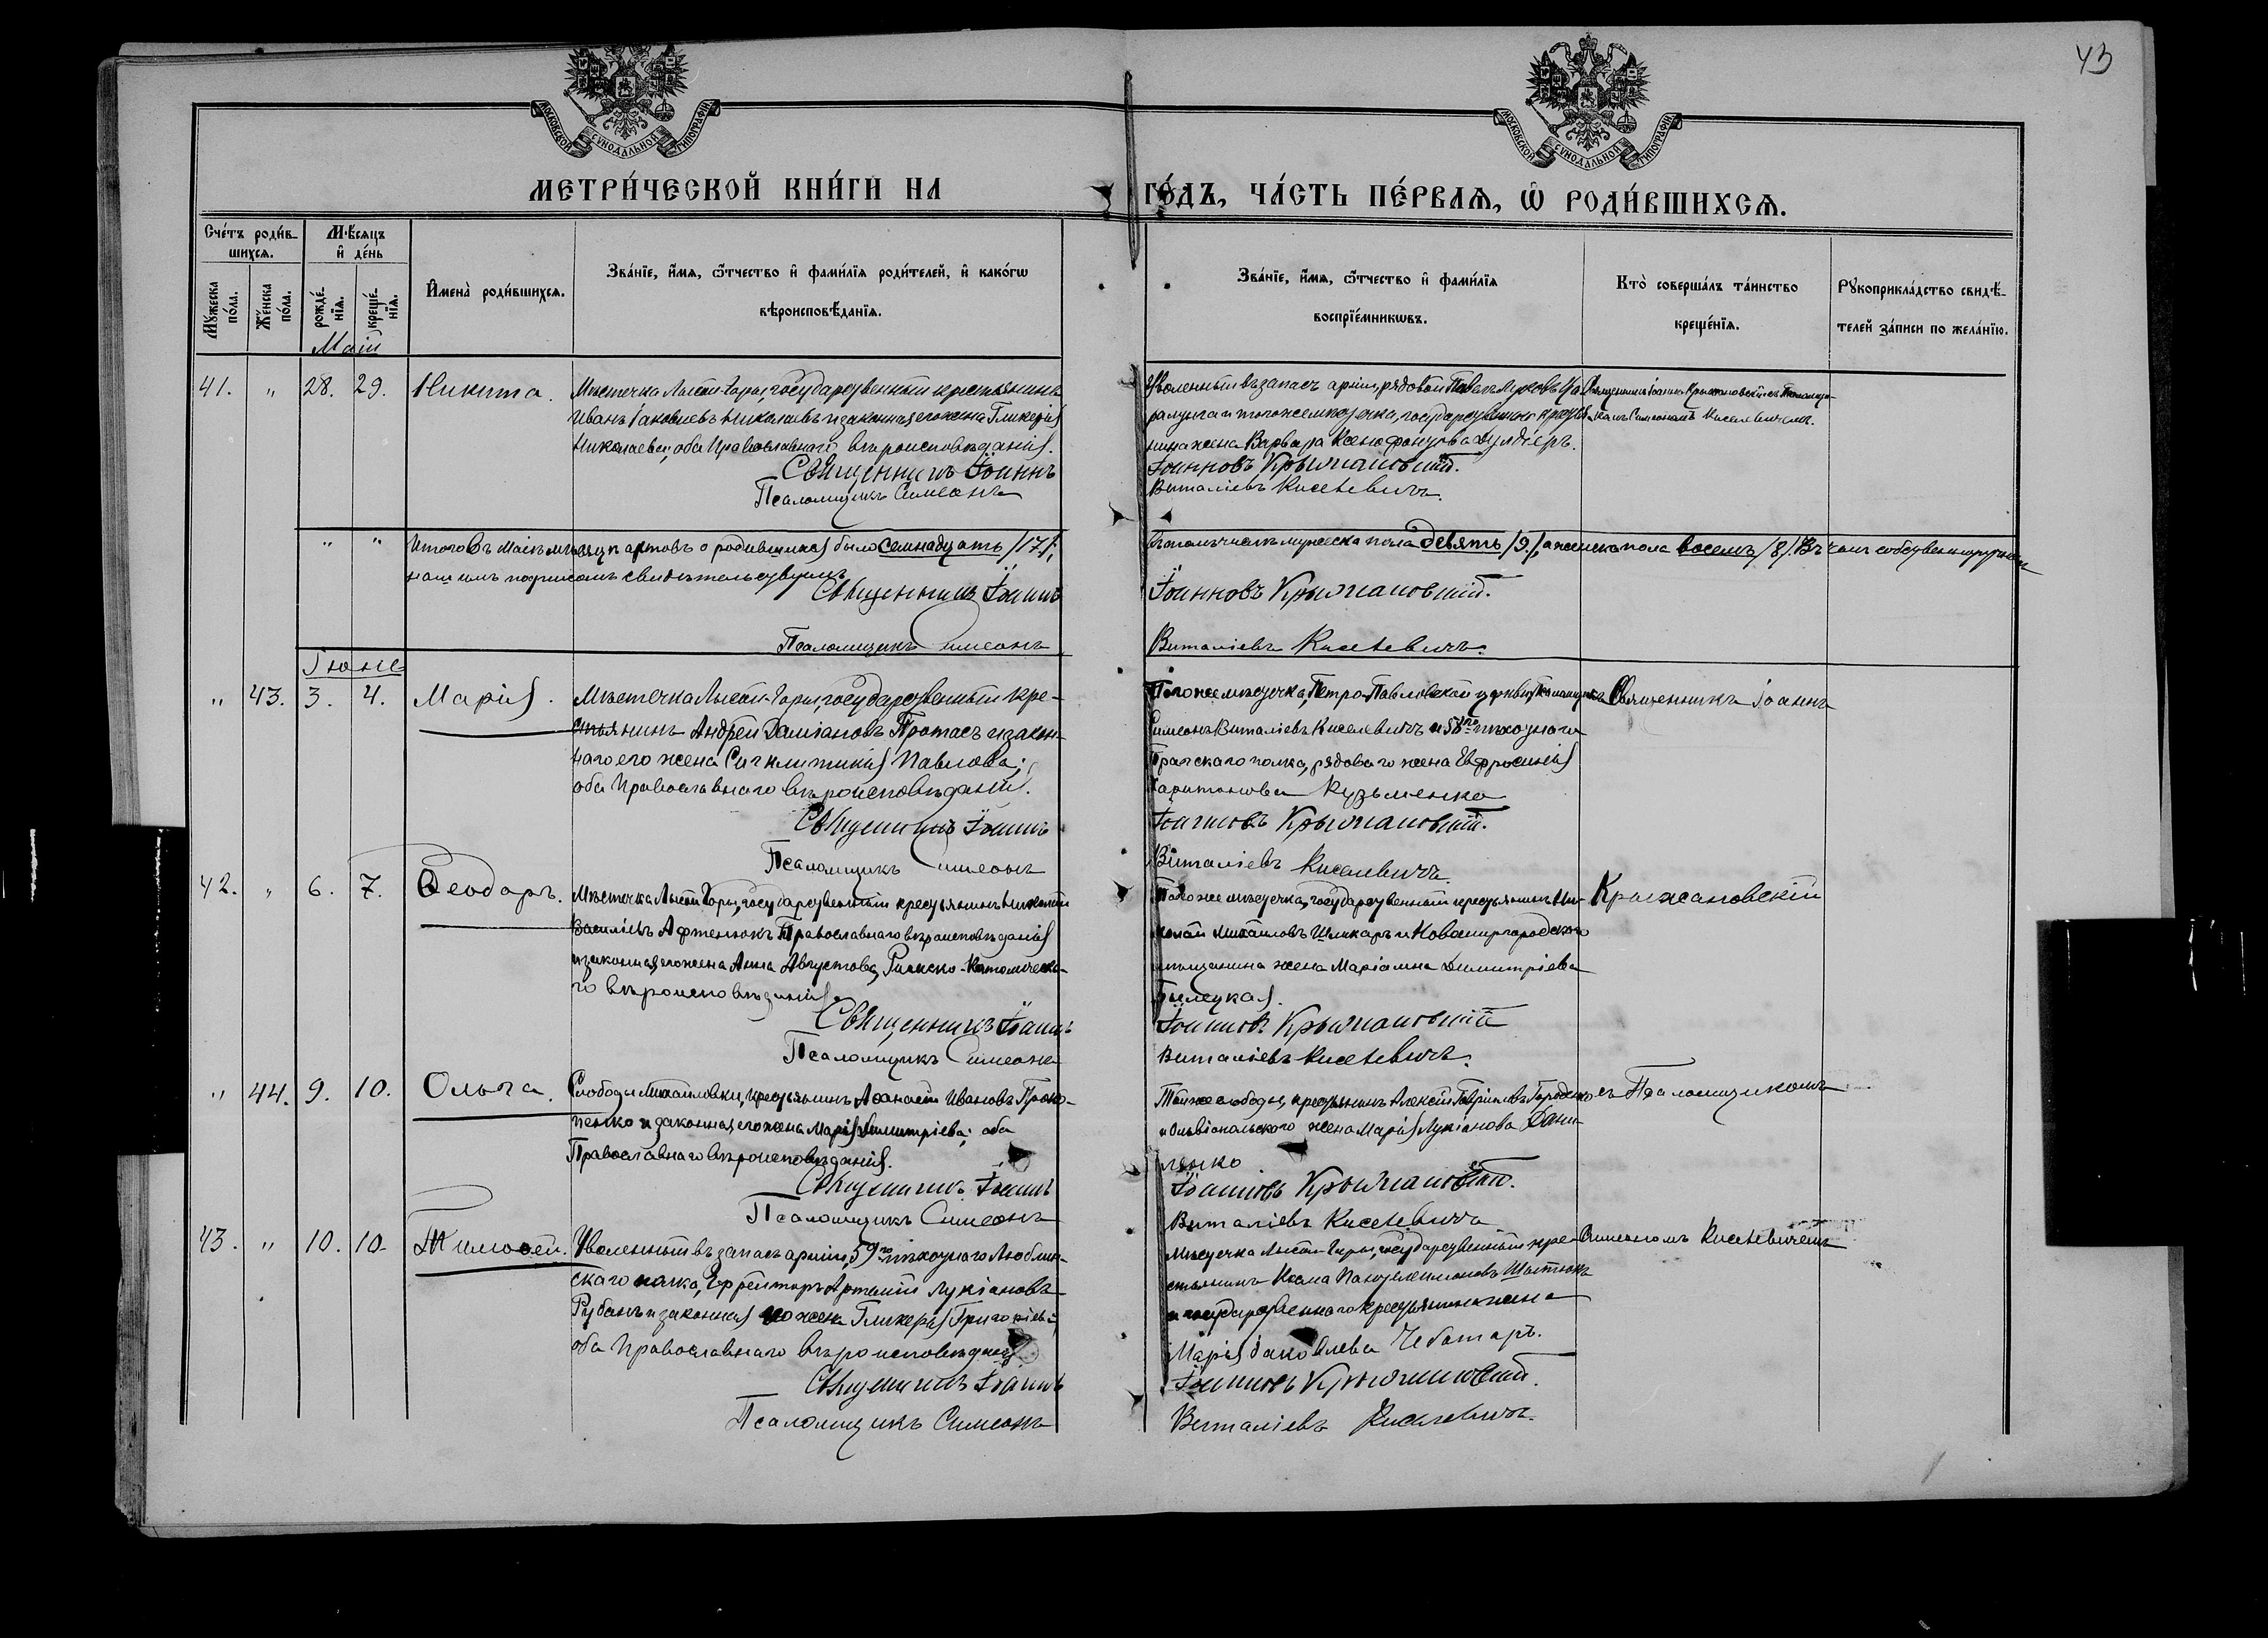 43
МОСКОВСКОЙ СѴНОДАЛЬНОЙ ТИПОГРАФІИ
МОСКОВСКОЙ СѴНОДАЛЬНОЙ ТИПОГРАФІИ
МЕТРИ́ЧЕСКОЙ КНИ́ГИ НА
ГО́ДЪ, ЧА́СТЬ ПЕ́РВАѦ, Ѡ РОДИ́ВШИХСѦ.
Сче́тъ роди́вшихсѧ.
Мѣ́сѧцъ и де́нь
Мꙋжеска по́ла.
Же́нска по́ла.
рожде́нїѧ.
креще́нїѧ.
И҆мена̀ роди́вшихсѧ.
Зва́нїе, и҆́мѧ, ѻ҆́тчество и҆ фами́лїѧ роди́телей, и҆ како́гѡ
вѣроисповѣ́данїѧ.
Зва́нїе, и҆́мѧ, ѻ҆́тчество и҆ фами́лїѧ
воспрїе́мникѡвъ.
Кто̀ соверша́лъ та́инство
креще́нїѧ.
Рꙋкоприкла́дство свидѣ́-
телей за́писи по жела́нїю.
Маій
41. " 28. 29. Никита.
Мѣстечка Лысой-Горы, государственный крестьянинъ
Иванъ Іаковлевъ Николаевъ и законная его жена Гликерія
Николаева; оба Православнаго вѣроисповѣданія.
Священникъ Іоаннъ
Псаломщикъ Симеонъ
Уволенный въ запасъ арміи, рядовой Павелъ
и того же мѣстечка, государственнаго
жена Варвара Ксенофонтова
Іоанновъ Крыжановскій.
Виталіевъ Киселевичъ.
Священникъ Іоаннъ Крыжановскій съ Псаломщи-
комъ Симеономъ Киселевичемъ.
" " Итого въ Маіѣ мѣсяцѣ актовъ о родившихся было семнадцать /17/;
въ томъ числѣ мужеска пола девять /9/, а женска пола восемь /8/. Въ чемъ собственноручнымъ
нашимъ подписомъ свидѣтельствуемъ
Священникъ Іоаннъ
Іоанновъ Крыжановскій.
Псаломщикъ Симеонъ
Виталіевъ Киселевичъ.
Іюнь
" 43. 3. 4. Марія.
Мѣстечка Лысой-Горы, государственный кре-
стьянинъ Андрей Даміановъ Протасъ и закон-
ная его жена Сигклитикія Павлова;
оба Православнаго вѣроисповѣданія.
Священникъ Іоаннъ
Псаломщикъ Симеонъ
Того же мѣстечка, Петро-Павловской церкви, Псаломщикъ
Симеонъ Виталіевъ Киселевичъ и 58го пѣхотнаго
Прагскаго полка, рядоваго жена Евфросинія
Харитонова Кузьменко
Іоанновъ Крыжановскій.
Виталіевъ Киселевичъ.
Священникъ Іоаннъ
42. " 6. 7. Ѳеодоръ.
Мѣстечка Лысой Горы, государственный крестьянинъ
Василіевъ Афтенюкъ Православнаго вѣроисповѣданія
и законная его жена Анна Августова, Римско-Католическа-
го вѣроисповѣданія.
Священникъ Іоаннъ
Псаломщикъ Симеонъ
Того же мѣстечка, государственный крестьянинъ Ни-
колай Михайловъ Шликарь и Новомиргородскаго
мѣщанина жена Маріамна Димитріева
Іоанновъ Крыжановскій
Виталіевъ Киселевичъ.
Крыжановскій
" 44. 9. 10. Ольга.
Слободы Михайловки, крестьянинъ Аѳанасій Ивановъ Проко-
пенко и законная его жена Марія Димитріева; оба
Православнаго вѣроисповѣданія.
Священникъ Іоаннъ
Псаломщикъ Симеонъ
Той же слободы, крестьянинъ Алексій
жена Марія Лукіанова Дани-
ленко
Іоанновъ Крыжановскій.
Виталіевъ Киселевичъ
съ Псаломщикомъ
43. " 10. 10. Тимоѳей.
Уволенный въ запасъ арміи, 59го пѣхотнаго Люблин-
скаго полка, Ефрейторъ Артемій Лукіановъ
Рубанъ и законная его жена Гликерія Григоріева;
оба Православнаго вѣроисповѣданія
Священникъ Іоаннъ
Псаломщикъ Симеонъ
Мѣстечка Лысой-Горы, государственный кре-
стьянинъ Косма Пантелеимоновъ
и государственнаго крестьянина жена
Марія Іаковлева Чеботарь.
Іоанновъ Крыжановскій.
Виталіевъ Киселевичъ.
Симеономъ Киселевичемъ